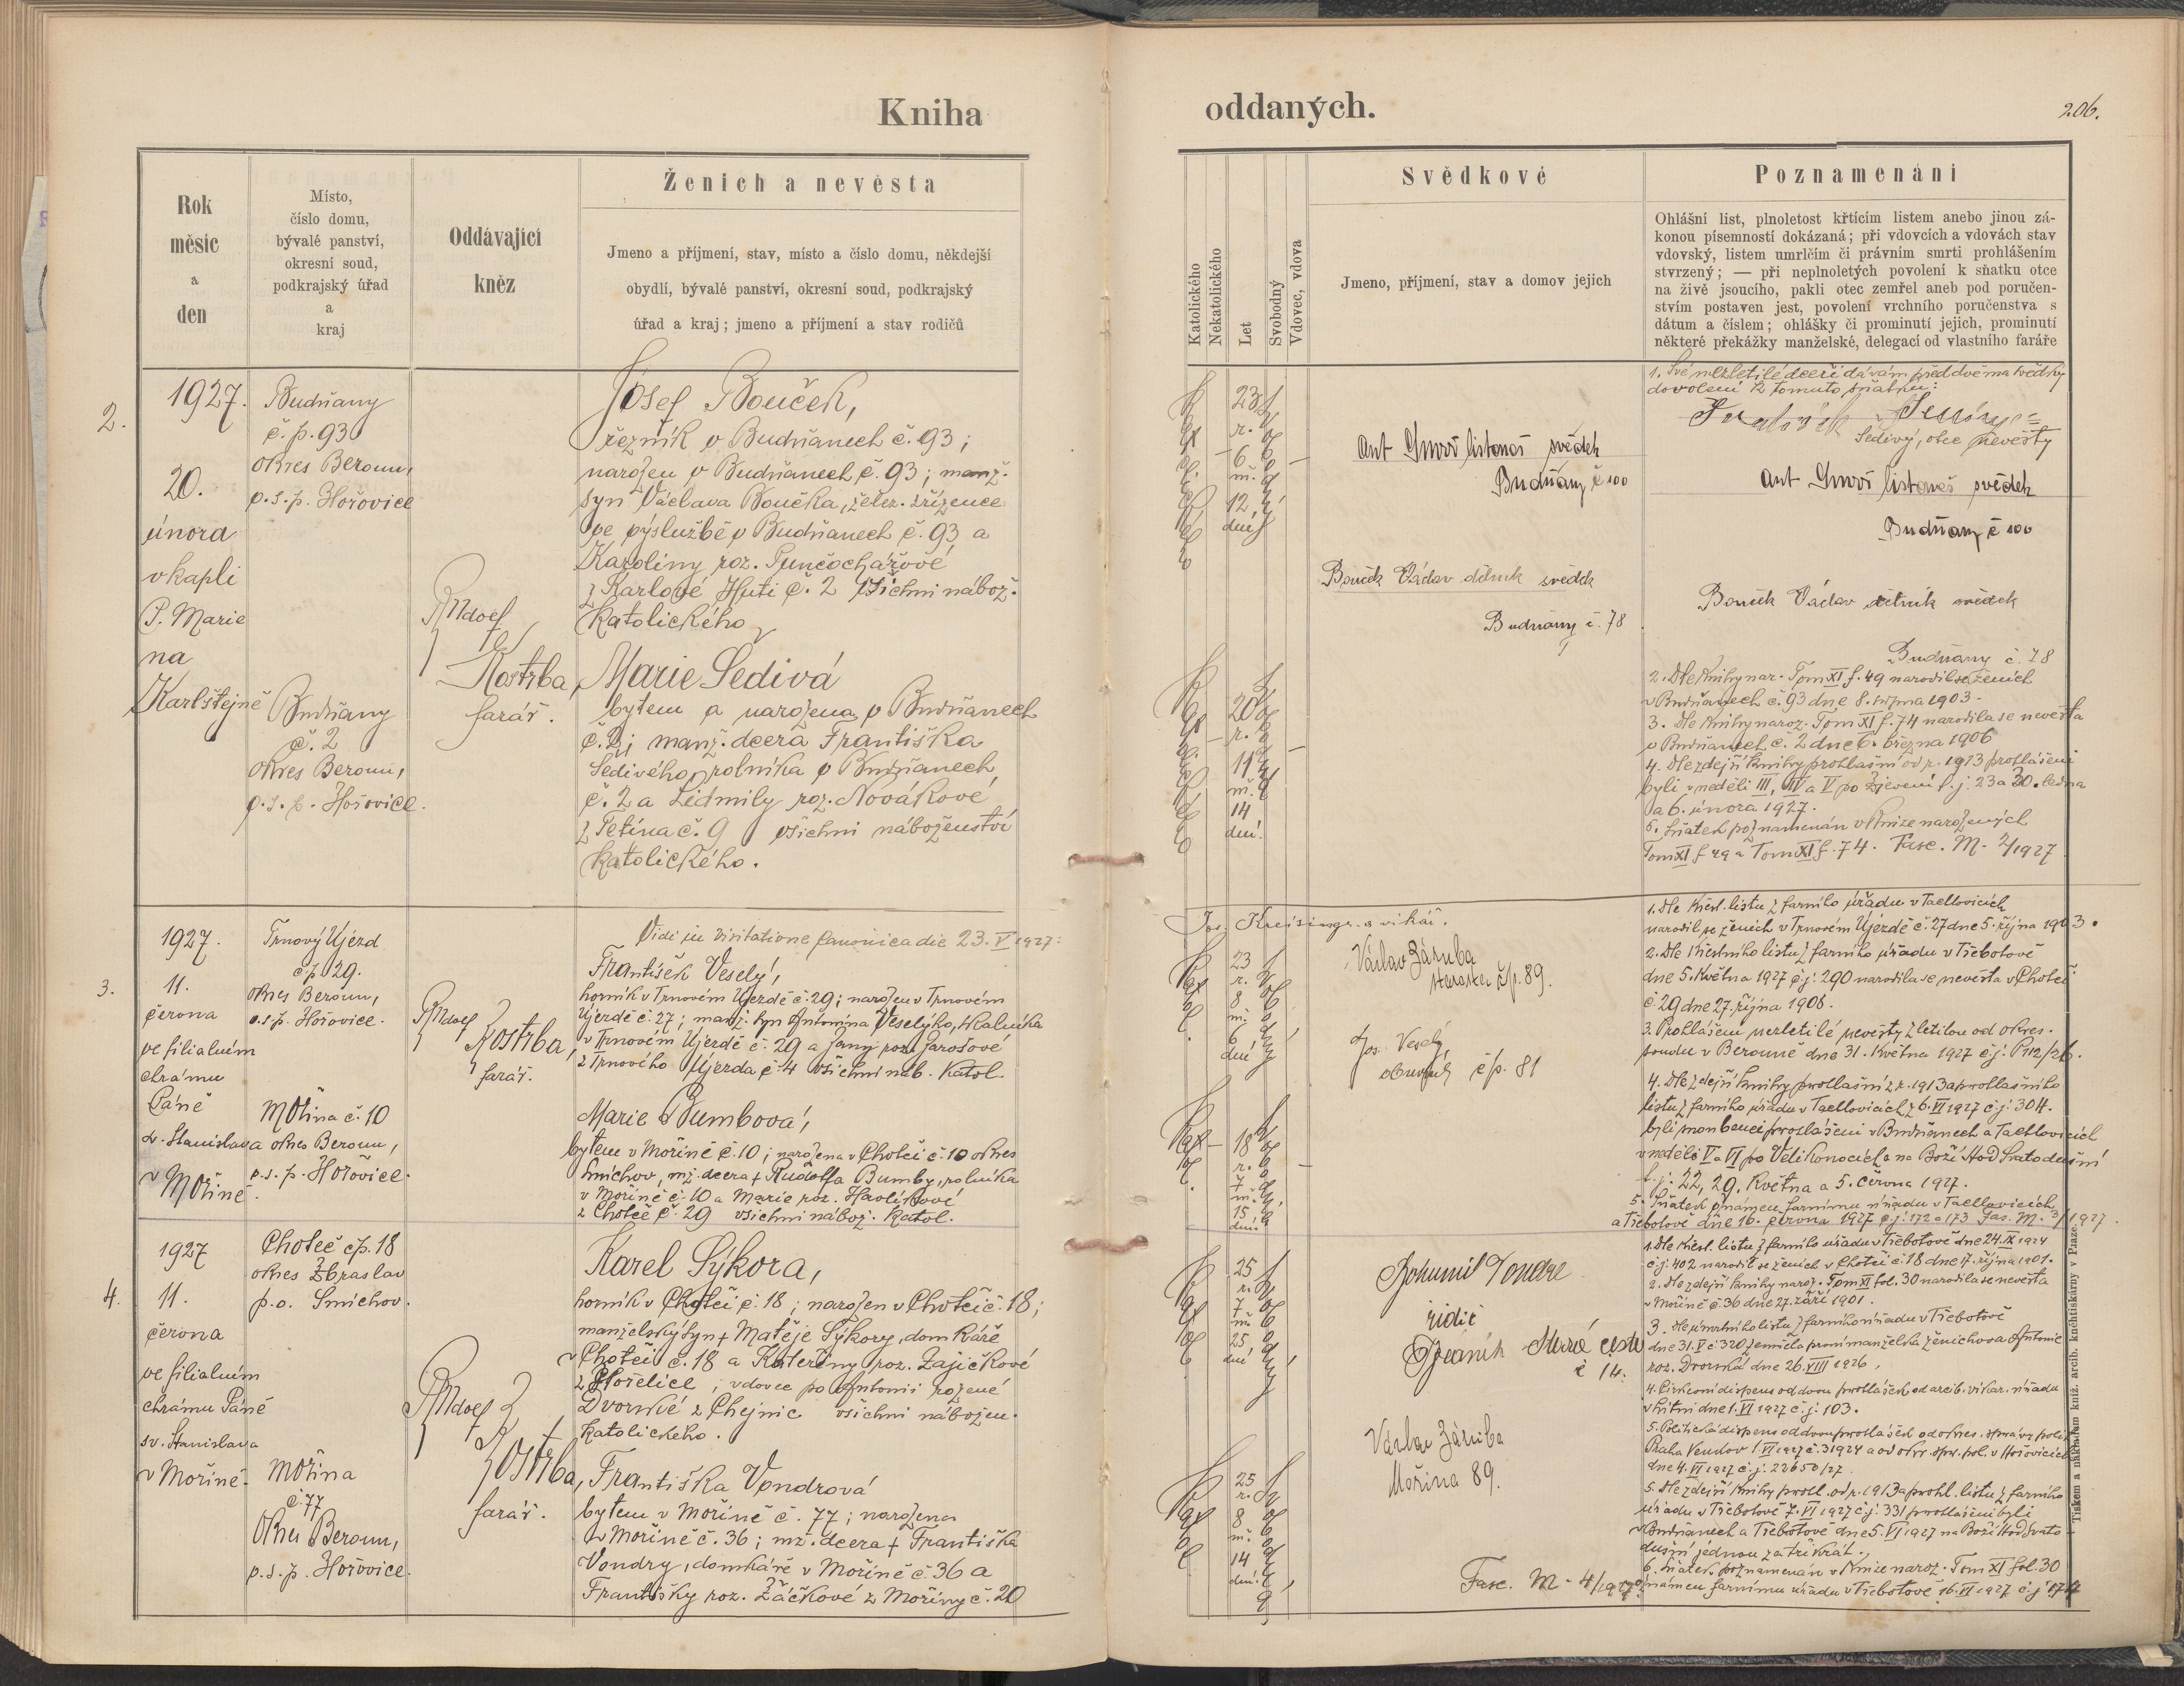 Kniha
oddaných.
206.
Rok
měsíc
a
den
Místo,
číslo domu,
bývalé panství,
okresní soud,
podkrajský úřad
a
kraj
Oddávající
kněz
Ženich a nevěsta
Jmeno a příjmení, stav, místo a číslo domu, někdejší
obydlí, bývalé panství, okresní soud, podkrajský
úřad a kraj; jmeno a příjmení a stav rodičů
Katolického
Nekatolického
Let
Svobodný
Vdovec, vdova
Svědkové
Jmeno, příjmení, stav a domov jejich
Poznamenáni
Ohlášní list, plnoletost křtícím listem anebo jinou zá-
konou písemností dokázaná; při vdovcích a vdovách stav
vdovský, listem umrlčím či právním smrti prohlášením
stvrzený; — při neplnoletých povolení k sňatku otce
na živě jsoucího, pakli otec zemřel aneb pod poručen-
stvím postaven jest, povolení vrchního poručenstva s
dátum a číslem; ohlášky či prominutí jejich, prominutí
některé překážky manželské, delegací od vlastního faráře
2.
1927.
20.
února
v kapli
P. Marie
na
Karlštejně
Budňany
č.p. 93
okres Beroun,
o.s.p. Hořovice
Budňany
č. 2
okres Beroun,
o.s.p. Hořovice.
Rudolf
Kostrba,
farář.
Josef Bouček,
řezník v Budňanech č. 93;
narozen v Budňanech č. 93; manž.
syn Václava Boučka, želez. zřízence
ve výslužbě v Budňanech č. 93 a
Karoliny roz. Punčochářové
z Karlové Huti č. 2 všichni nábož.
katolického
Marie Šedivá
bytem a narozena v Budňanech
č. 2; manž. dcera Františka
Šedivého, rolníka v Budňanech
č. 2 a Lidmily roz. Novákové
z Tetína č. 9 všichni náboženství
katolického.
23
r.
6
m.
12
dní
20
r.
11
m.
14
dní.
Ant listonoš svědek
Budňany č 100
Bouček Václav dělník svědek
Budňany č. 78
1. Své nezletilé dceři dávám před dvěma svědky
dovolení k tomuto sňatku:
Šedivý, otec nevěsty
Ant listonoš svědek
Budňany č 100
Bouček Václav dělník svědek
Budňany č. 78
2. Dle knihy nar. Tom XI f. 49 narodil se ženich
v Budňanech č. 93 dne 8. srpna 1903.
3. Dle knihy naroz. Tom XI f. 74 narodila se nevěsta
v Budňanech č. 2 dne 6. března 1906
4. Dle zdejší knihy prohlašní od r. 1913 prohlášeni
byli v neděli III, IV a V po Zjevení t. j. 23 a 30. ledna
a 6. února 1927.
5. Sňatek poznamenán v knize narozených
Tom XI f 49 a Tom XI f. 74. Fasc. M. 2/1927
3.
1927.
11.
června
ve filialním
chrámu
Páně
sv. Stanislava
v Mořině.
Trnový Újezd
čp. 29.
okres Beroun,
o.s.p. Hořovice.
Mořina č. 10
okres Beroun,
o.s.p. Hořovice.
Rudolf
Kostrba,
farář.
Vidi in visitatione canonica die 23. V 1927:
Jos. Kreisinger a. vikář.
František Veselý,
horník v Trnovém Újezdě č. 29; narozen v Trnovém
Újezdě č. 27; manž. syn Antonína Veselýho, skalníka
v Trnovém Újezdě č. 29 a Jany roz. Jarošové
z Trnového Újezda č. 4 všichni náb. katol.
Marie Bumbová,
bytem v Mořině č. 10; narozena v Chotči č. 10 okres
Smíchov, mž. dcera † Rudolfa Bumby, rolníka
v Mořině č. 10 a Marie roz. Havlíkové
z Chotče č. 29 všichni nábož. katol.
23
r.
8
m.
6
dní
18
r.
7
m.
15
dní.
Václav Záruba
starosta čp. 89.
Jos. Veselý
obuvník čp. 81
1. Dle křest. listu z farního úřadu v Tachlovicích
narodil se ženich v Trnovém Újezdě č. 27 dne 5. října 1903.
2. Dle křestního listu z farního úřadu v Třebotově
dne 5. května 1927 č.j. 290 narodila se nevěsta v Chotči
č. 29 dne 27. října 1908.
3. Prohlášení nezletilé nevěsty zletilou od okres.
soudu v Berouně dne 31. května 1927 č.j. P112/26.
4. Dle zdejší knihy prohlašní z r. 1913 a prohlašního
listu z farního úřadu v Tachlovicích z 6. VI 1927 č.j. 304.
byli snoubenci prohlášeni v Budňanech a Tachlovicích
v neděli V a VI po Velikonocích a na Boží Hod Svatodušní
t. j. 22, 29. května a 5. června 1927.
5. Sňatek oznámen farnímu úřadu v Tachlovicích
a Třebotově dne 16. června 1927 č.j. 172 a 173 Fas. M. 3/1927.
4.
1927
11.
června
ve filialním
chrámu Páně
sv. Stanislava
v Mořině.
Choteč čp. 18
okres Zbraslav
p.o. Smíchov.
Mořina
č. 77
Okres Beroun,
o.s.p. Hořovice.
Rudolf
Kostrba,
farář.
Karel Sýkora,
horník v Chotči č. 18; narozen v Chotči č. 18;
manželský syn † Matěje Sýkory, domkáře
v Chotči č. 18 a Kateřiny roz. Zajíčkové
z Hořelice; vdovec po Antonii rozené
Dvorské z Chejnic všichni nábožen.
katolického.
Františka Vondrová
bytem v Mořině č. 77; narozena
v Mořině č. 36; mž. dcera † Františka
Vondry, domkáře v Mořině č. 36 a
Františky roz. Žáčkové z Mořiny č. 20
25
r.
7
m.
25
dní
25
r.
8
m.
14
dní.
Bohumil Vondra
řidič
č 14.
Václav Záruba
Mořina 89.
Fasc. M - 4/1927
1. Dle křest. listu z farního úřadu v Třebotově dne 24. IX 1924
č.j. 402 narodil se ženich v Chotči č. 18 dne 17. října 1901.
2. Dle zdejší knihy naroz. Tom XI fol. 30 narodila se nevěsta
v Mořině č. 36 dne 27. září 1901.
3. Dle úmrtního listu z farního úřadu v Třebotově
dne 31. V č 320 zemřela první manželka ženichova Antonie
roz. Dvorská dne 26. VIII 1926.
4. Církevní dispens od dvou prohlášek od arcib. vikar. úřadu
dne 1. VI 1927 č.j. 103.
5. Politická dispens od dvou prohlášek od okres. správy polit.
Praha Venkov 1 VI 1927 č. 31924 a od okr. spr. pol. v Hořovicích
dne 4. VI 1927 č.j. 22650/27.
5. Dle zdejší knihy prohl. od r. 1913 a prohl. listu z farního
úřadu v Třebotově 7. VI 1927 č.j. 331 prohlášeni byli
v Budňanech a Třebotově dne 5. VI 1927 na Boží Hod Svato-
dušní jednou za třikrát.
6. Sňatek poznamenán v knize naroz. Tom XI fol. 30
oznámen farnímu úřadu v Třebotově 16. VI 1927 č.j. 174
Tiskem a nákladem kníž. arcib. knihtiskárny v Praze.